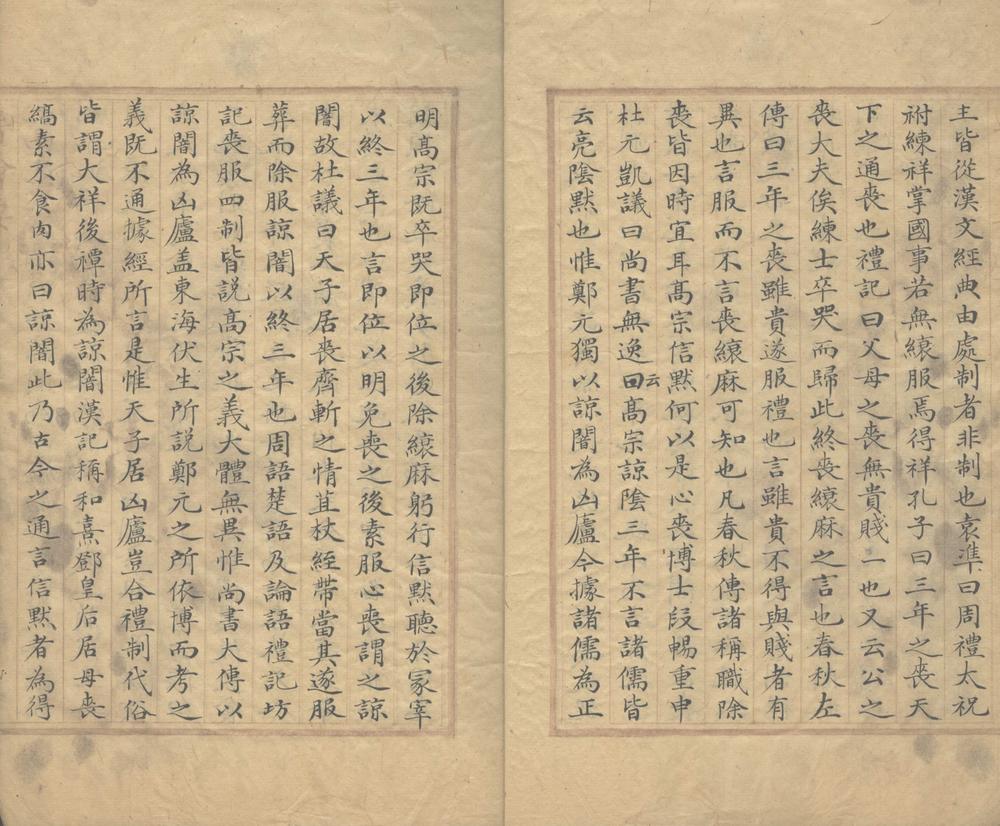 主皆從漢文經典由處制者非制也袁準曰周禮太祝
祔練祥掌國事若無縗服焉得祥孔子曰三年之喪天
下之通喪也禮記曰父母之喪無貴賤一也又云公之
喪大夫俟練士卒哭而歸此終喪縗麻之言也春秋左
傳曰三年之喪雖貴遂服禮也言雖貴不得與賤者有
異也言服而不言喪縗麻可知也凡春秋傳諸稱職除
喪皆因時宜耳髙宗信默何以是心喪博士段暢重申
杜元凱議曰尚書無逸曰云髙宗諒陰三年不言諸儒皆
云亮陰默也惟鄭元獨以諒闇為凶廬今據諸儒為正
明髙宗既卒哭即位之後除縗麻躬行信默聽於冢宰
以終三年也言即位以明免喪之後素服心喪謂之諒
闇故杜議曰天子居喪齊斬之情苴杖絰帶當其遂服
葬而除服諒闇以終三年也周語楚語及論語禮記坊
記喪服四制皆説髙宗之義大體無異惟尚書大傳以
諒闇為凶廬盖東海伏生所説鄭元之所依博而考之
義既不通據經所言是惟天子居凶廬豈合禮制代俗
皆謂大祥後禫時為諒闇漢記稱和熹鄧皇后居母喪
縞素不食肉亦曰諒闇此乃古今之通言信默者為得